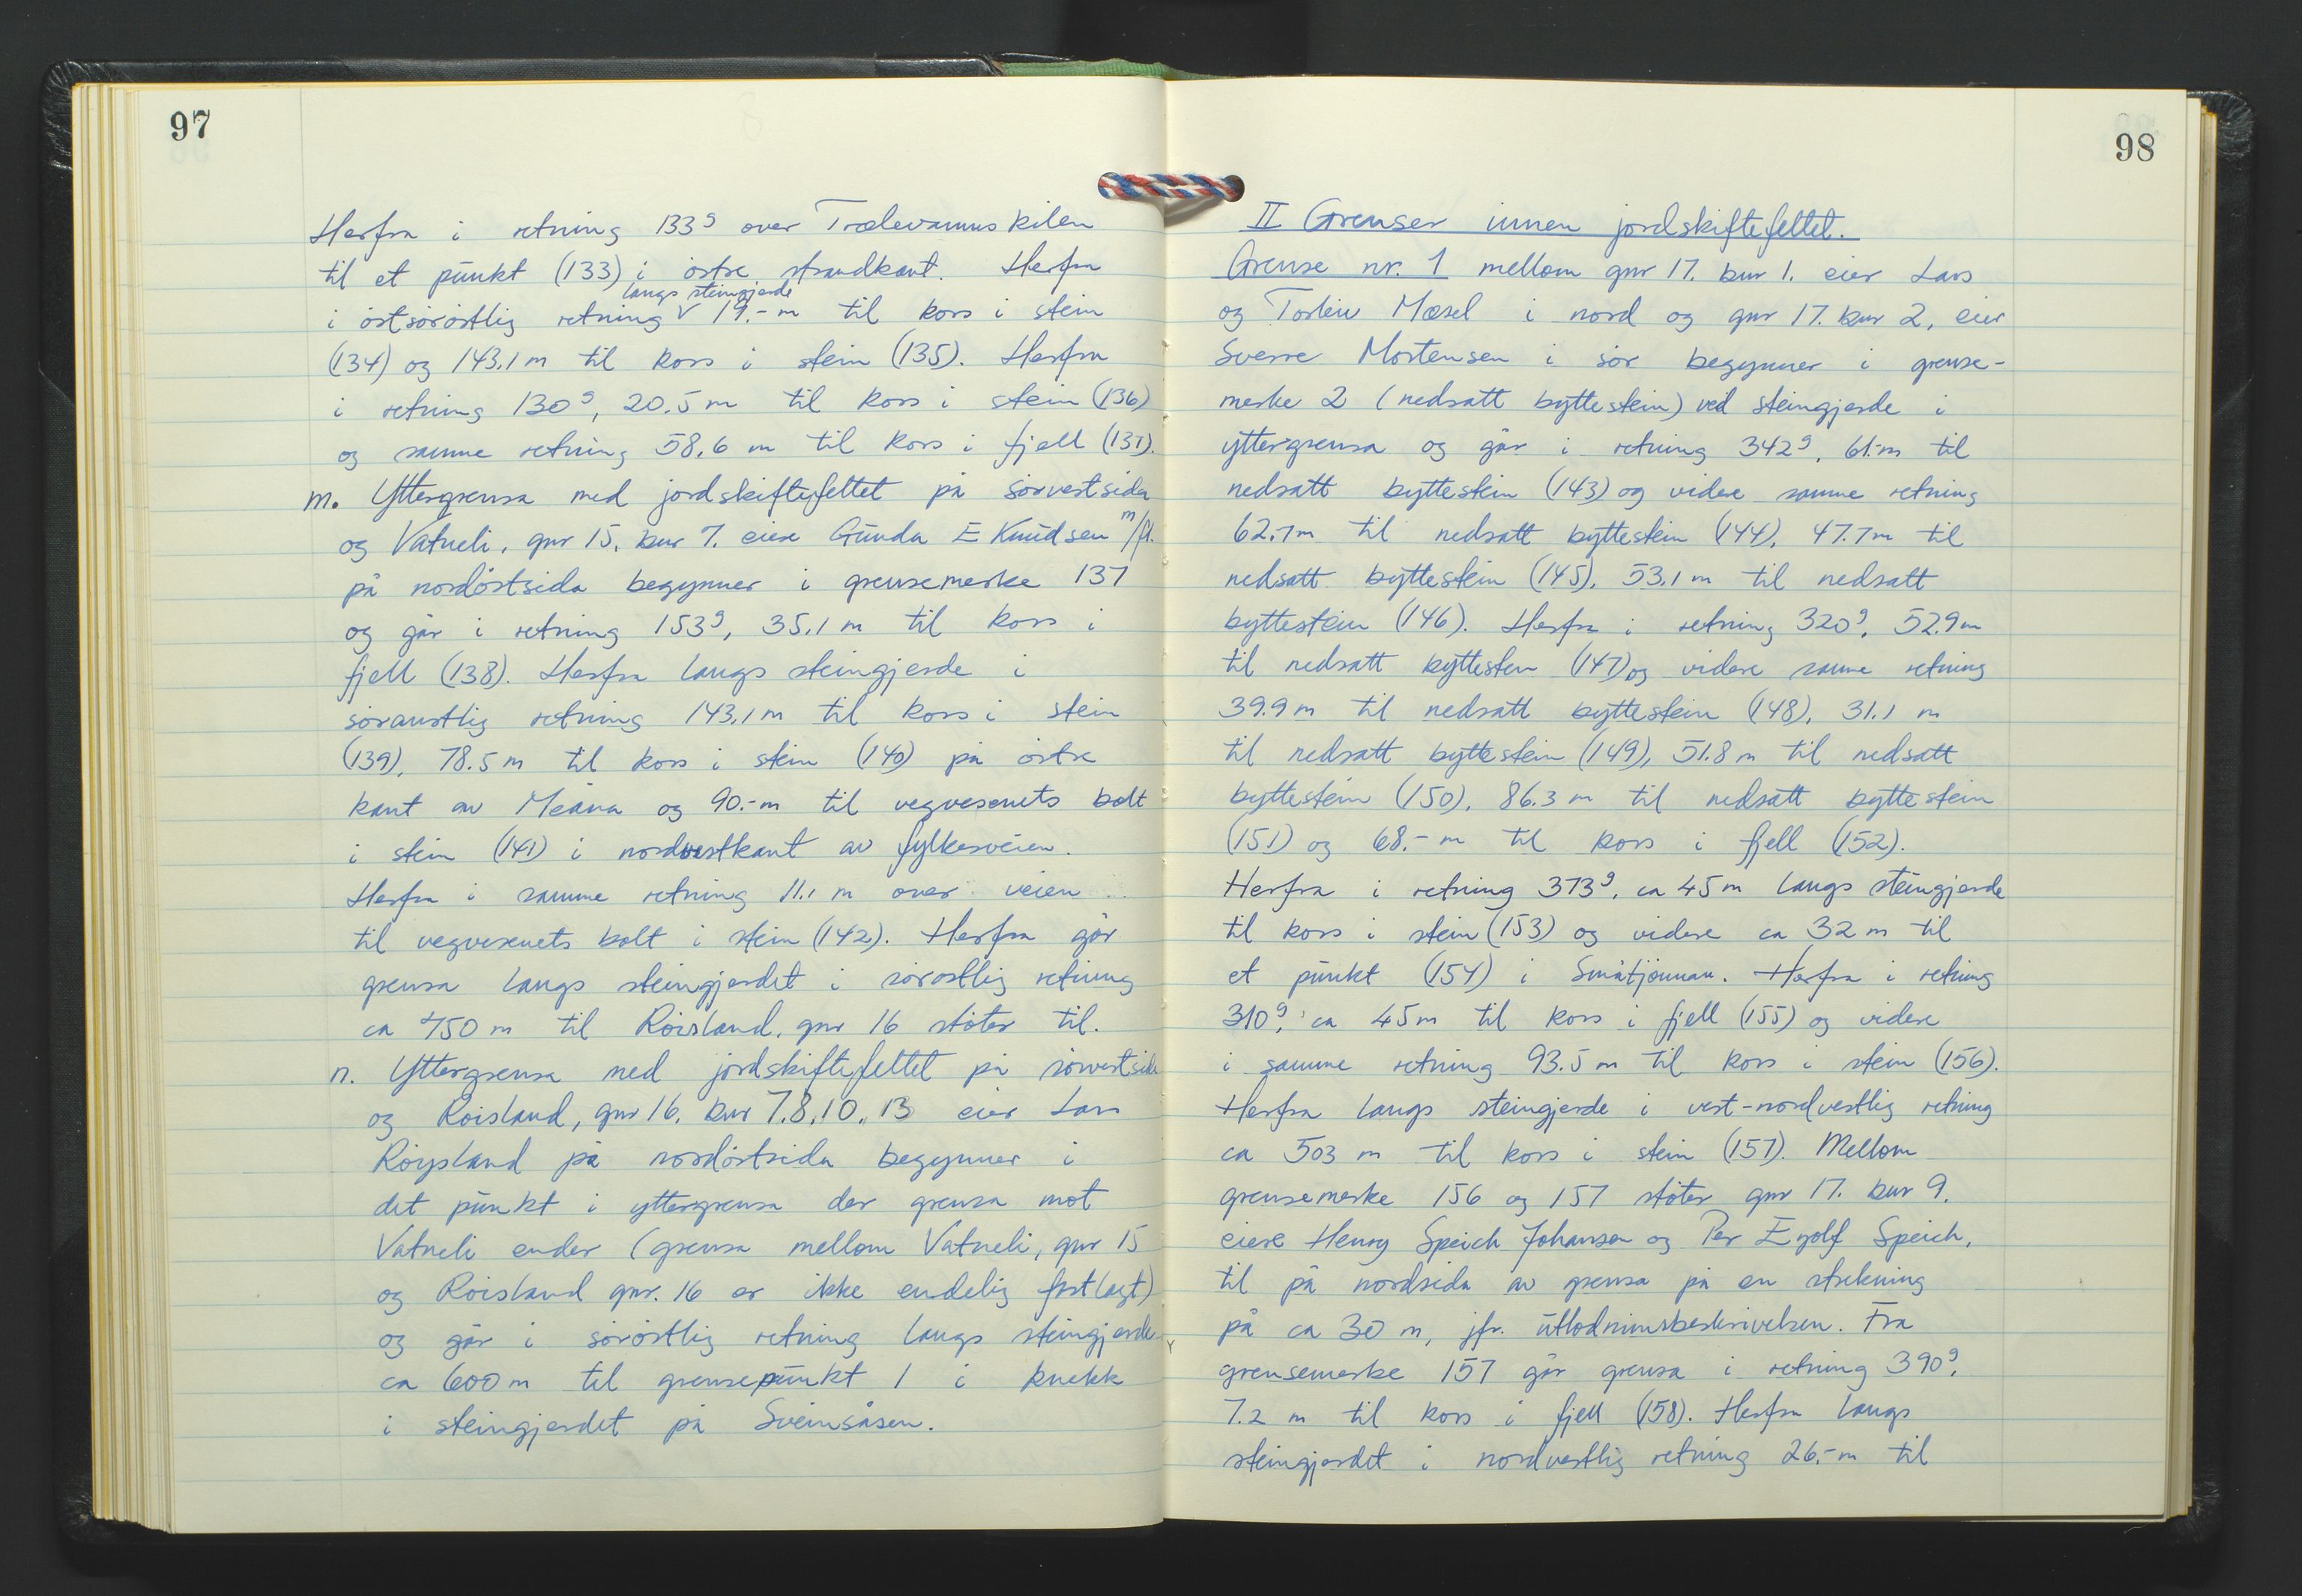 97
Herfra i retning 133g over Trælevannskilen
til et punkt (133) i östre strandkant. Herfra
langs steingjerde
i östsöröstlig retning V 19.- m til kors i stein
(134) og 143,1 m til kors i stein (135). Herfra
i retning 130g, 20.5 m til kors i stein (136)
og samme retning 58,6 m til kors i fjell (137).
m. Yttergrensa med jordskiftefeltet på sörvestsida
og Vatneli, gnr 15, bnr 7. eiere Gunda E Knudsen m/fl.
på nordöstsida begynner i grensemerke 137
og går i retning 153g, 35,1 m til kors i
fjell (138). Herfra langs steingjerde i
söraustlig retning 143,1 m til kors i stein
(139), 78.5 m til kors i stein (140) på östre
kant av Meåna og 90.- m til vegvesenets bolt
i stein (141) i nordvestkant av fylkesveien.
Herfra i samme retning 11.1 m over veien
til vegvesenets bolt i stein (142). Herfra går
grensa langs steingjerdet i söröstlig retning
ca 750 m til Röisland, gnr 16 stöter til.
n. Yttergrensa med jordskiftefeltet på sörvestsida
og Röisland, gnr 16, bnr 7,8,10,,13 eier Lars
Röysland på nordöstsida begynner i
det punkt i yttergrensa der grensa mot
Vatneli ender (grensa mellom Vatneli, gnr 15
og Röisland gnr. 16 er ikke endelig fastlagt)
og går i söröstlig retning langs steingjerde
ca 600 m til grensepunkt 1 i knekk
i steingjerdet på Sveinsåsen.
98
II Grenser innen jordskiftefeltet.
Grense nr. 1 mellom gnr 17. bnr 1. eier Lars
og Torleiv Mæsel i nord og gnr 17. bnr 2, eier
Sverre Mortensen i sör begynner i grense-
merke 2 (nedsatt byttestein) ved steingjerde i
yttergrensa og går i retning 342g, 61.- m til
nedsatt byttestein (143) og videre samme retning
62,7 m til nedsatt byttestein (144), 47.7 m til
nedsatt byttestein (145), 53,1 m til nedsatt
byttestein (146). Herfra i retning 320g, 52.9 m
til nedsatt byttesten (147) og videre samme retning
39.9 m til nedsatt byttestein (148), 31.1 m
til nedsatt byttestein (149), 51.8 m til nedsatt
byttestein (150), 86.3 m til nedsatt byttestein
(151) og 68.- m til kors i fjell (152).
Herfra i retning 373g, ca 45 m langs steingjerde
til kors i stein (153) og videre ca 32 m til
et punkt (154) i Småtjönnan. Herfra i retning
310g, ca 45 m til kors i fjell (155) og videre
i samme retning 93.5 m til kors i stein (156).
Herfra langs steingjerde i vest-nordvestlig retning
ca 503 m til kors i stein (157). Mellom
grensemerke 156 og 157 stöter gnr 17. bnr 9.
eiere Henry Speich Johansen og Per Eyolf Speich,
til på nordsida av grensa på en strekning
på ca 30 m, jfr. utlodninsbeskrivelsen. Fra
grensemerke 157 går grensa i retning 390g,
7.2 m til kors i fjell (158). Herfra langs
steingjerdet i nordvestlig retning 26.- m til